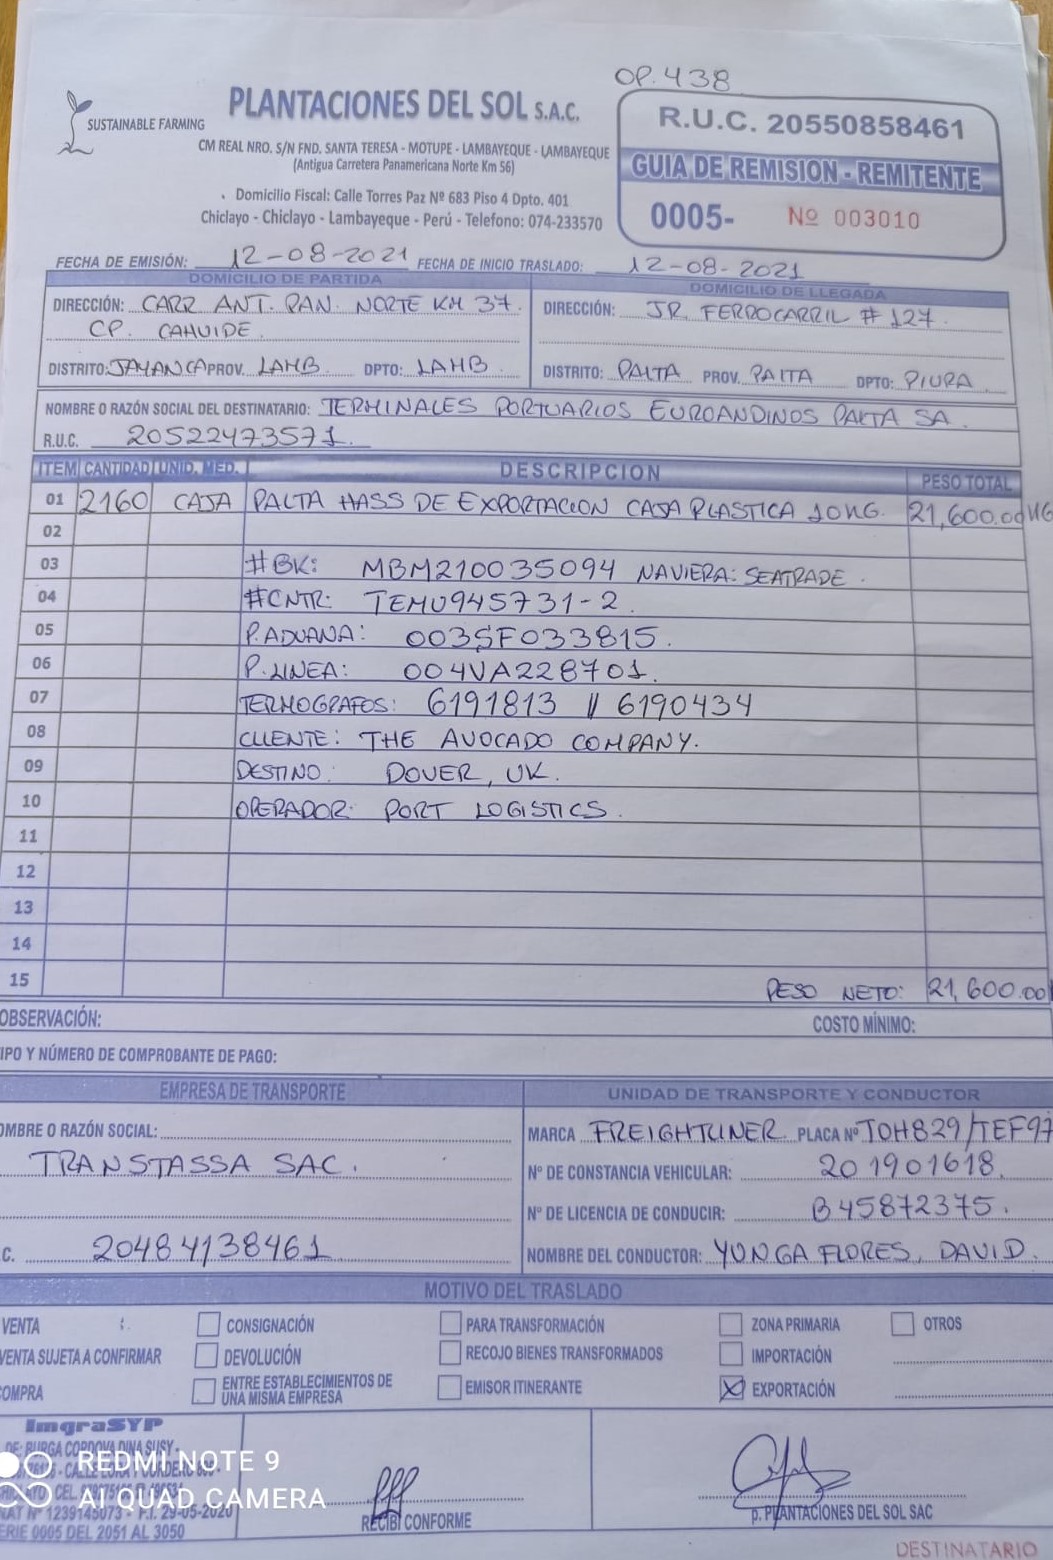 OP. 438
SUSTAINABLE FARMING
PLANTACIONES DEL SOL S.A.C.
CM REAL NRO. S/N FND. SANTA TERESA - MOTUPE - LAMBAYEQUE - LAMBAYEQUE
(Antigua Carretera Panamericana Norte Km 56)
Domicilio Fiscal: Calle Torres Paz Nº 683 Piso 4 Dpto. 401
Chiclayo - Chiclayo - Lambayeque - Perú - Telefono: 074-233570
R.U.C. 20550858461
GUIA DE REMISION - REMITENTE
0005- Nº 003010
FECHA DE EMISIÓN: 12-08-2021 FECHA DE INICIO TRASLADO: 12-08-2021
DOMICILIO DE PARTIDA
DIRECCIÓN: CARR ANT. PAN. NORTE KM 37.
CP. CAHUIDE.
DISTRITO: JAYANCA PROV. LAMB. DPTO: LAMB.
DOMICILIO DE LLEGADA
DIRECCIÓN: JR. FERROCARRIL # 127.
DISTRITO: PAITA PROV. PAITA DPTO: PIURA
NOMBRE O RAZÓN SOCIAL DEL DESTINATARIO: TERMINALES PORTUARIOS EUROANDINOS PAITA SA.
R.U.C. 20522473571.
ITEM CANTIDAD UNID. MED. DESCRIPCION PESO TOTAL
01 2160 CAJA PALTA HASS DE EXPORTACION CAJA PLASTICA 10KG. 21,600.00 KG
02
03 #BK: MBM210035094 NAVIERA: SEATRADE.
04 #CNTR: TEMU945731-2.
05 P.ADUANA: 003SF033815.
06 P.LINEA: 004VA228701.
07 TERMOGRAFOS: 6191813 // 6190434
08 CLIENTE: THE AVOCADO COMPANY.
09 DESTINO: DOVER, UK.
10 OPERADOR: PORT LOGISTICS.
11
12
13
14
15 PESO NETO: 21,600.00
OBSERVACIÓN: COSTO MÍNIMO:
IPO Y NÚMERO DE COMPROBANTE DE PAGO:
EMPRESA DE TRANSPORTE
OMBRE O RAZÓN SOCIAL:
TRANSTASSA SAC.
C. 20484138461
UNIDAD DE TRANSPORTE Y CONDUCTOR
MARCA FREIGHTLINER PLACA Nº TOH829/TEF97
Nº DE CONSTANCIA VEHICULAR: 201901618.
Nº DE LICENCIA DE CONDUCIR: B45872375.
NOMBRE DEL CONDUCTOR: YUNGA FLORES, DAVID.
MOTIVO DEL TRASLADO
VENTA CONSIGNACIÓN PARA TRANSFORMACIÓN ZONA PRIMARIA OTROS
VENTA SUJETA A CONFIRMAR DEVOLUCIÓN RECOJO BIENES TRANSFORMADOS IMPORTACIÓN
OMPRA ENTRE ESTABLECIMIENTOS DE UNA MISMA EMPRESA EMISOR ITINERANTE EXPORTACIÓN
ImgraSYP
DE: BURGA CORDOVA DINA SUSY
NAT Nº 1239145073 - F.I. 29-05-2020
ERIE 0005 DEL 2051 AL 3050
REDMI NOTE 9
AI QUAD CAMERA
RECIBÍ CONFORME
p. PLANTACIONES DEL SOL SAC
DESTINATARIO